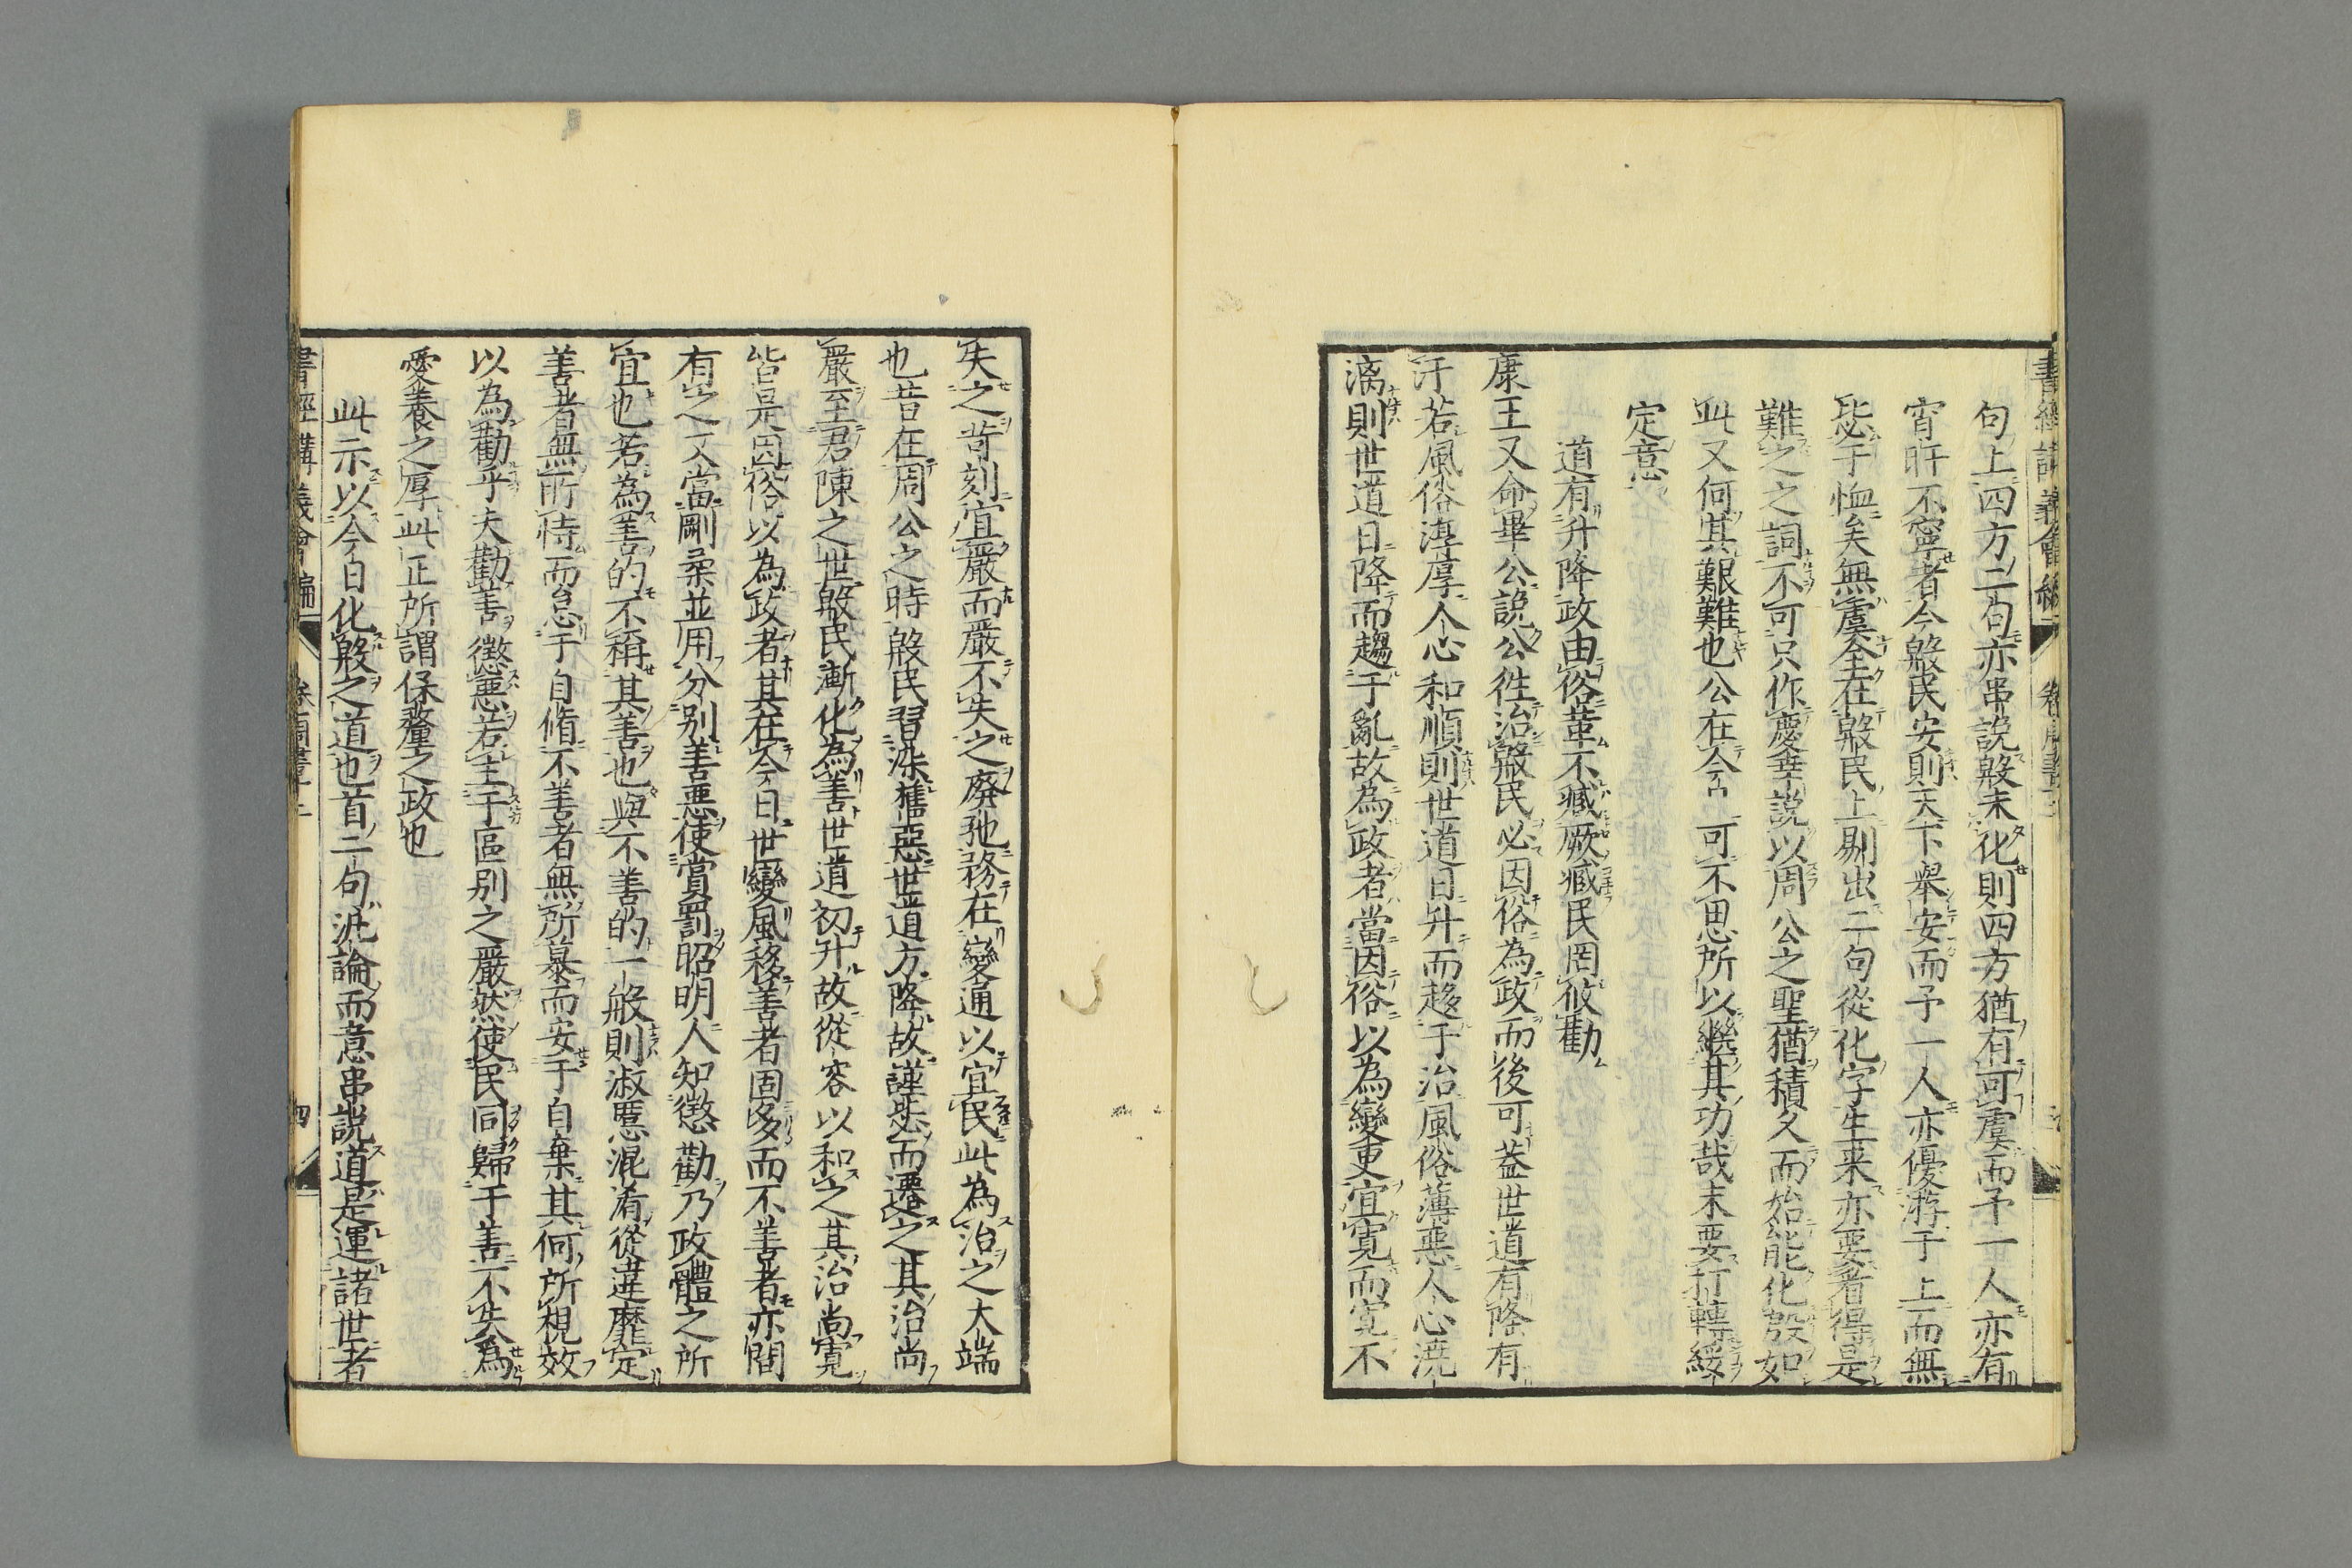 句上四方二句亦串說殷未化則四方猶有可虞而予一人亦有
宵旰不寧者今殷民安則天下舉安而予一人亦優游于上而無
毖于恤矣無虞全在殷民上剔出二句從化字生來亦要看得是
難之之詞不可只作慶幸說以周公之聖猶積久而始能化殷如
此又何其艱難也公在今日可不思所以繼其功哉末要打轉綏
定意
道有升降政由俗革不臧厥臧民罔攸勸
康王又命畢公說公徃治殷民必因俗為政而後可蓋世道有降有
汙若風俗淳厚人心和順則世道日升而趍于治風俗薄惡人心澆
漓則世道日降而趨于亂故為政者當因俗以為變更宜寬而寬不
失之苛刻宜嚴而嚴不失之廢弛務在變通以宜民此為治之大端
也昔在周公之時殷民習染舊惡世道方降故謹毖而遷之其治尚
嚴至君陳之世殷民漸化為善世道初升故從容以和之其治尚寬
皆是因俗以為政者其在今日世變風移善者固多而不善者亦間
有之又當剛柔並用分別善惡使賞罰昭明人知懲勸乃政體之所
宜也若為善的不稱其善也與不善的一般則淑慝混淆從違靡定
善者無所恃而怠于自脩不善者無所暴而安于自棄其何所視效
以為勸乎夫勸善懲惡若主于區別之嚴然使民同歸于善不失為
愛養之厚此正所謂保釐之政也
此示以今日化殷之道也首二句泛論而意串說道是運諸世者
書經講義會編 卷 四